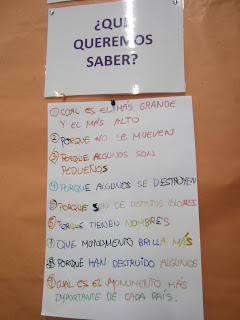 ¿QUÉ
QUEREMOS
SABER?
1 CUAL ES EL MÁS GRANDE
Y EL MÁS ALTO
2 PORQUE NO SE MUEVEN
3 PORQUE ALGUNOS SON
PEQUEÑOS
4 PORQUE ALGUNOS SE DESTRUYEN
5 PORQUE SON DE DISTINTOS COLORES
6 PORQUE TIENEN NOMBRES
7 QUE MONUMENTO BRILLA MÁS
8 PORQUE HAN DESTRUIDO ALGUNOS
9 CUAL ES EL MONUMENTO MÁS
IMPORTANTE DE CADA PAÍS.